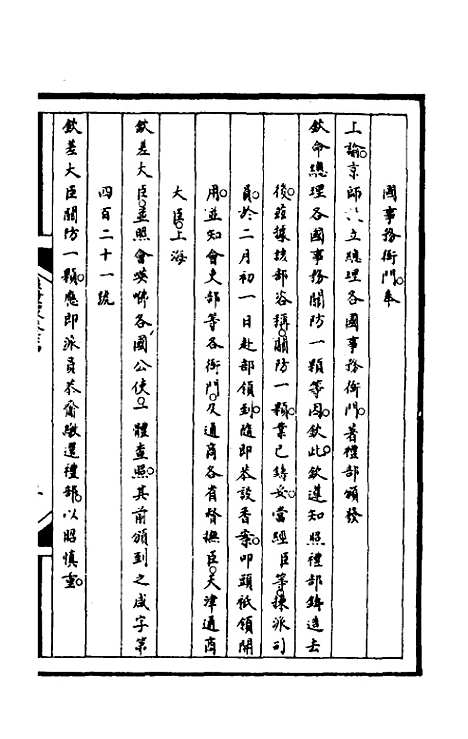 國事務衙門奉
上諭京師設立總理各國事務衙門著禮部頒發
欽命總理各國事務關防一顆等因欽此欽遵知照禮部鑄造去
後茲據該部咨稱關防一顆業已鑄妥當經臣等揀派司
員於二月初一日赴部領到隨即恭設香案叩頭祇領開
用並知會吏部等各衙門及通商各省督撫臣天津通商
大臣上海
欽差大臣並照會英咈各國公使一體查照其前頒到之咸字第
四百二十一號
欽差大臣關防一顆應即派員恭齎繳還禮部以昭慎重